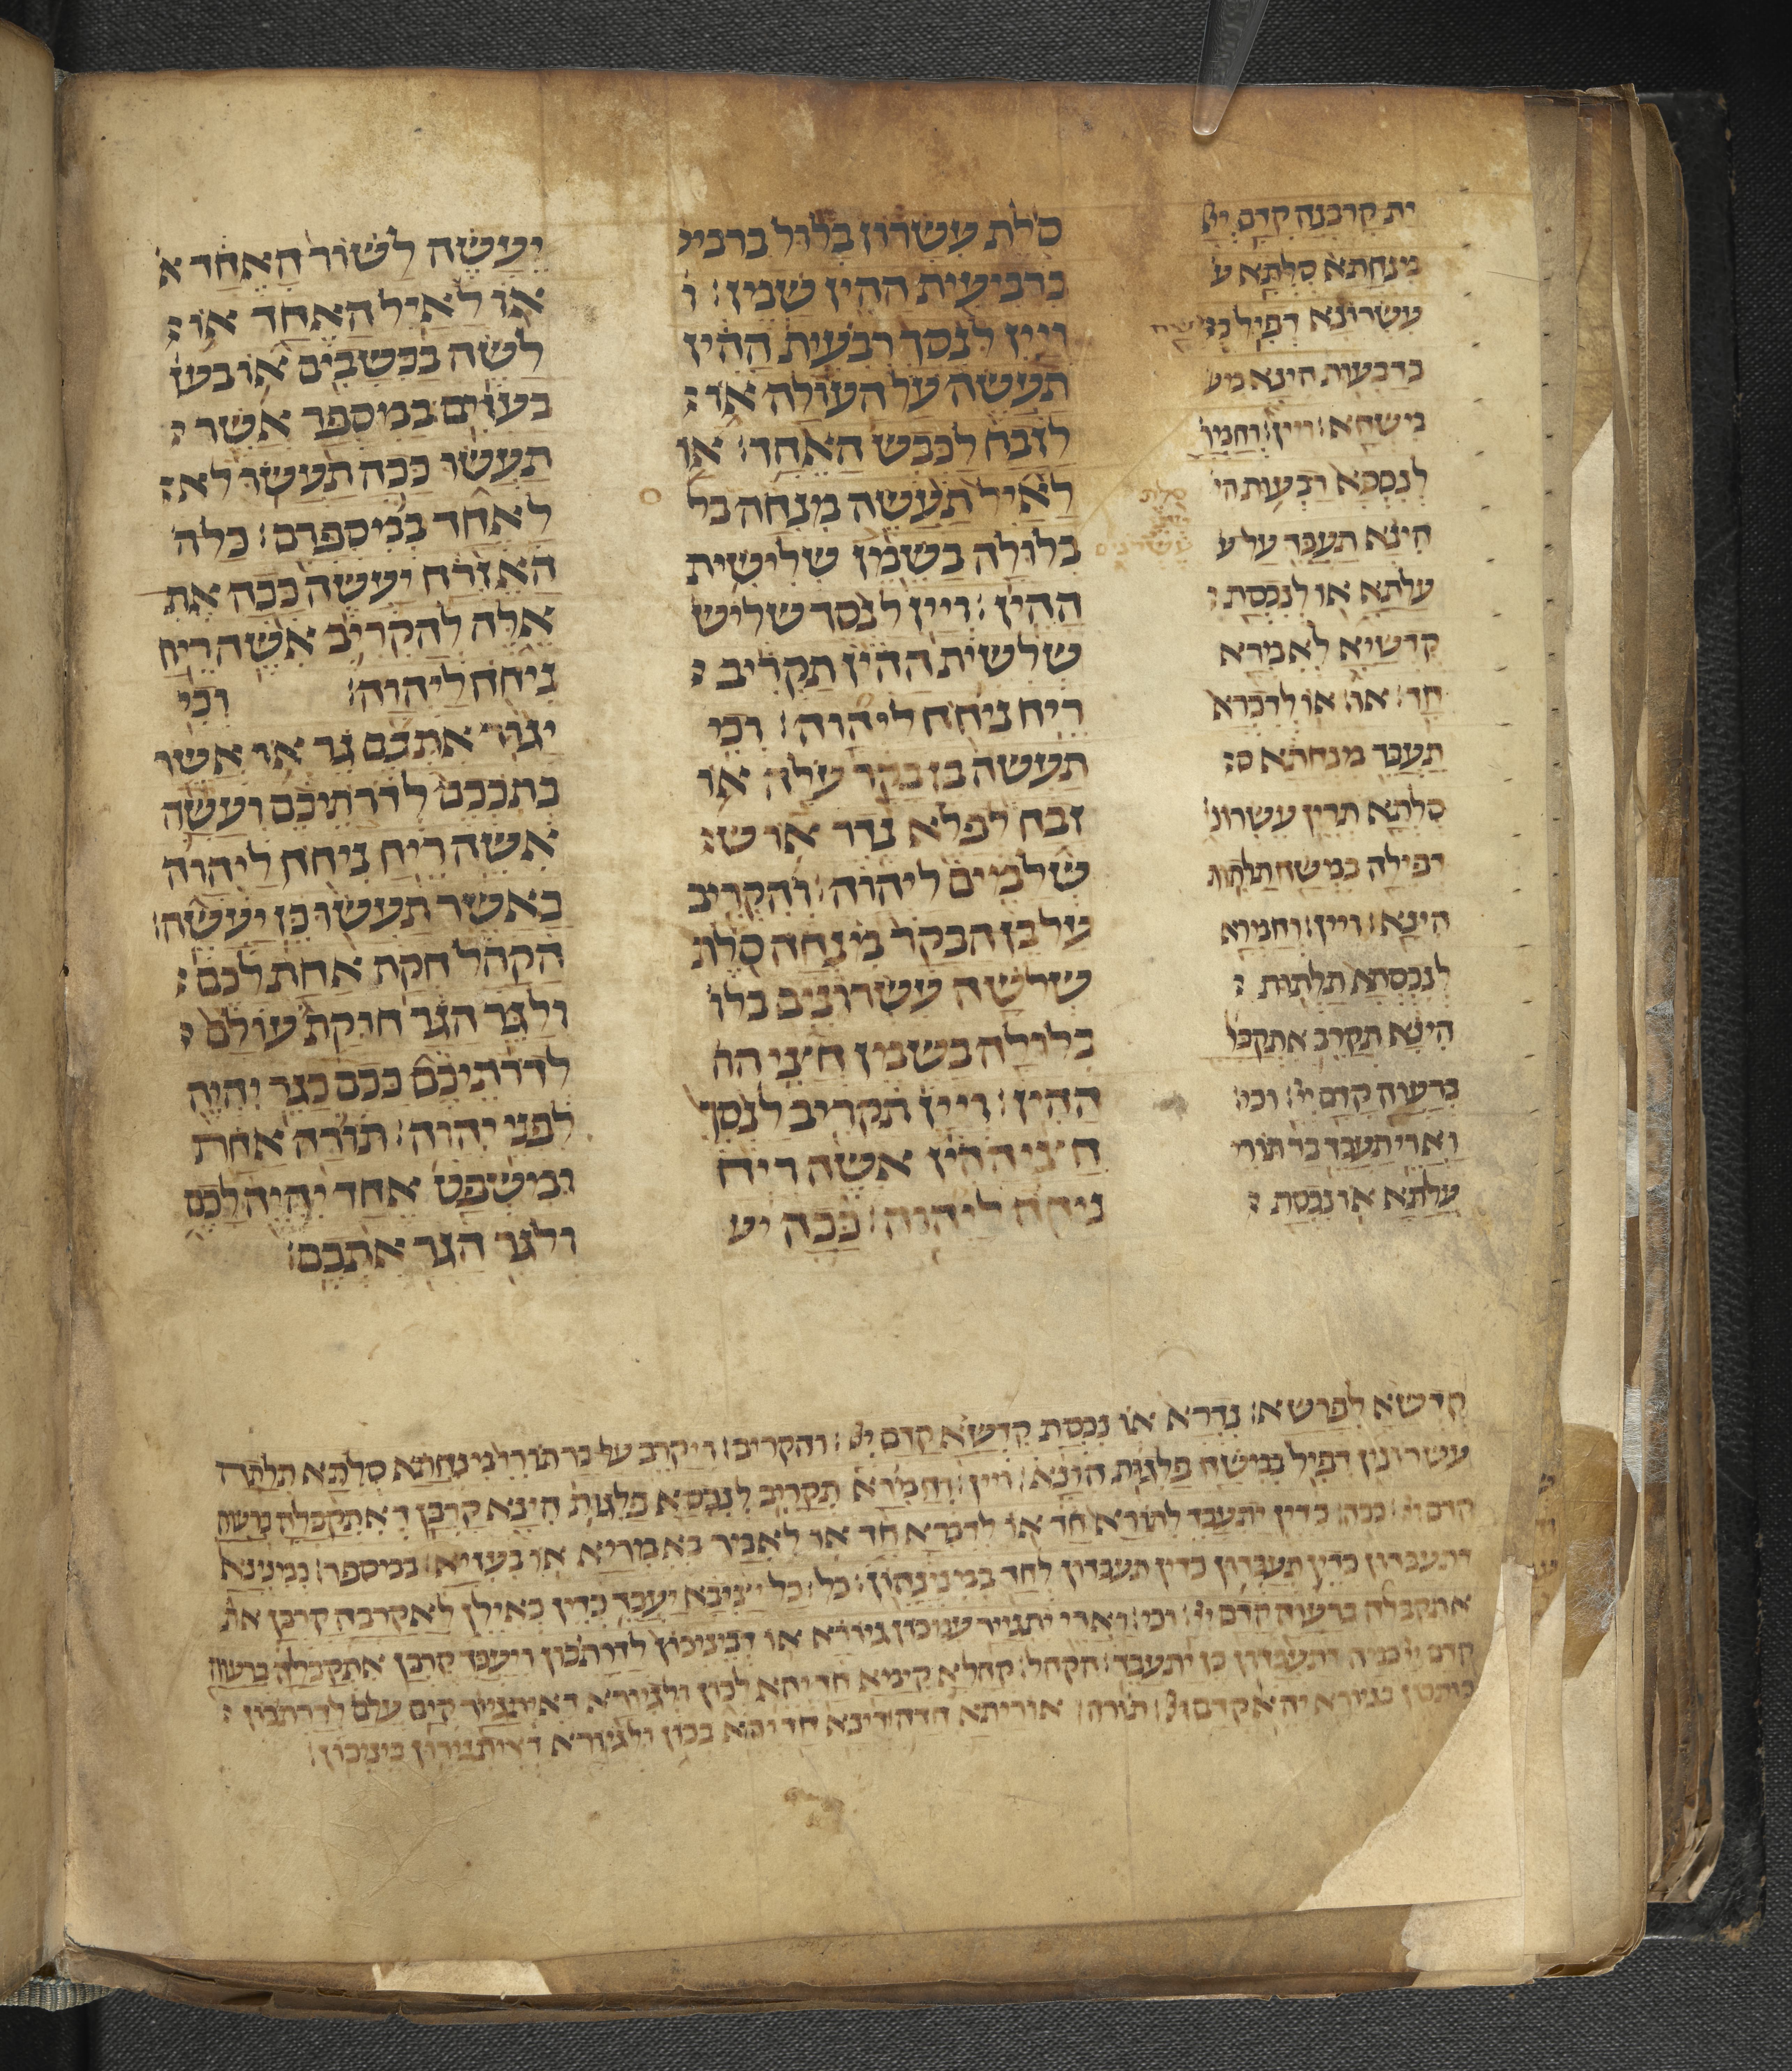 ית קרבנה קדם יי
מנחתא סלתא ע
עשרונא דפיל
ברבעות הינא מש
משחא׃ ויין׃ וחמר
לנסכא רבעות הי
הינא תעבד על ע
עלתא או לנכסת
קדשיא לאמרא
חד׃ או׃ או לדכרא
תעבד מנחתא ס
סלתא תרין עשרונ
דפילה במשח תלתות
הינא׃ ויין׃ וחמרא
לנסכא תלתות
הינא תקרב אתקבל
ברעוה קדם יי׃ וכי׃
וארי תעבד בר תורי
עלתא או נכסת
סלת עשרון בלול ברבי
ברביעית ההין שמן׃ ו
ויין לנסך רבעית ההין
תעשה על העולה או
לזבח לכבש האחד׃ או
לאיל תעשה מנחה בל
סלת
עשרנים
בלולה בשמן שלישית
ההין׃ ויין לנסך שליש
שלשית ההין תקריב
ריח ניחח ליהוה׃ וכי
תעשה בן בקר עלה או
זבח לפלא נדר או ש
שלמים ליהוה׃ והקריב
על בן הבקר מנחה סלת
שלשה עשרונים בלו
בלולה בשמן חצי הה
ההין׃ ויין תקריב לנסך
חצי ההין אשה ריח
ניחח ליהוה׃ ככה יע
יעשה לשור האחד א
או לאיל האחד או
לשה בכשבים או בע
בעזים במספר אשר
תעשו ככה תעשו לא
לאחד במיספרם׃ כל ה
האזרח יעשה ככה את
אלה להקריב אשה ריח
ניחח ליהוה׃ וכי
יגור אתכם גר או אשר
בתככם לדרתיכם ועשה
אשה ריח ניחח ליהוה
כאשר תעשו כן יעשה׃
הקהל חקת אחת לכם
ולגר הגר חוקת עולם
לדרתיכם ככם כגר יהיה
לפני יהוה׃ תורה אחת
ומשפט אחד יהיה לכם
ולגר הגר אתכם׃
קדשא לפרשא׃ נדרא או נכסת קדשא קדם יי׃ והקריב׃ ויקרב על בר תורי מנחתא סלתא תלתה
עשרונין דפיל במשח פלגות הינא׃ ויין׃ וחמרא תקרב לנסכא פלגות הינא קרבן דאתקבלה ברעוה
קדם יי׃ ככה׃ כדין יתעבד לתורא חד או לדכרא חד או לאמר באמריא או בעזיא׃ במספר׃ במנינא
דתעבדון כדין תעבדון כדין תעבדון לחד במנינהון׃ כל׃ כל יציבא יעבד כדין כאילין לאקרבה קרבן את
אתקבלה ברעוה קדם יי׃ וכי׃ וארי יתגייר עמכון גיורא או דביניכון לדרתכון ויעבד קרבן אתקבלה ברעוה
קדם יי כמה דתעבדון כן יתעבד׃ הקהל׃ קהלא קימא חד יהא לכון ולגיורא דאיתגייר קים עלם לדרתכון
כותכון כגיורא יהא קדם יי׃ תורה׃ אוריתא חדה ודינא חד יהא לכון ולגיורא דאיתגיירון ביניכון׃